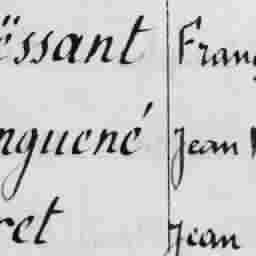 ëssant Franç
nguené Jean
ret Jean